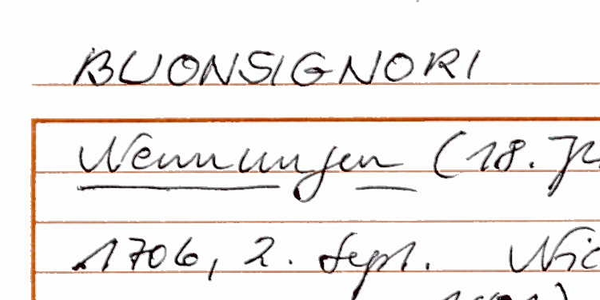 BUONSIGNORI
Nennungen (18. Jh
1706, 2. Sept. Nic